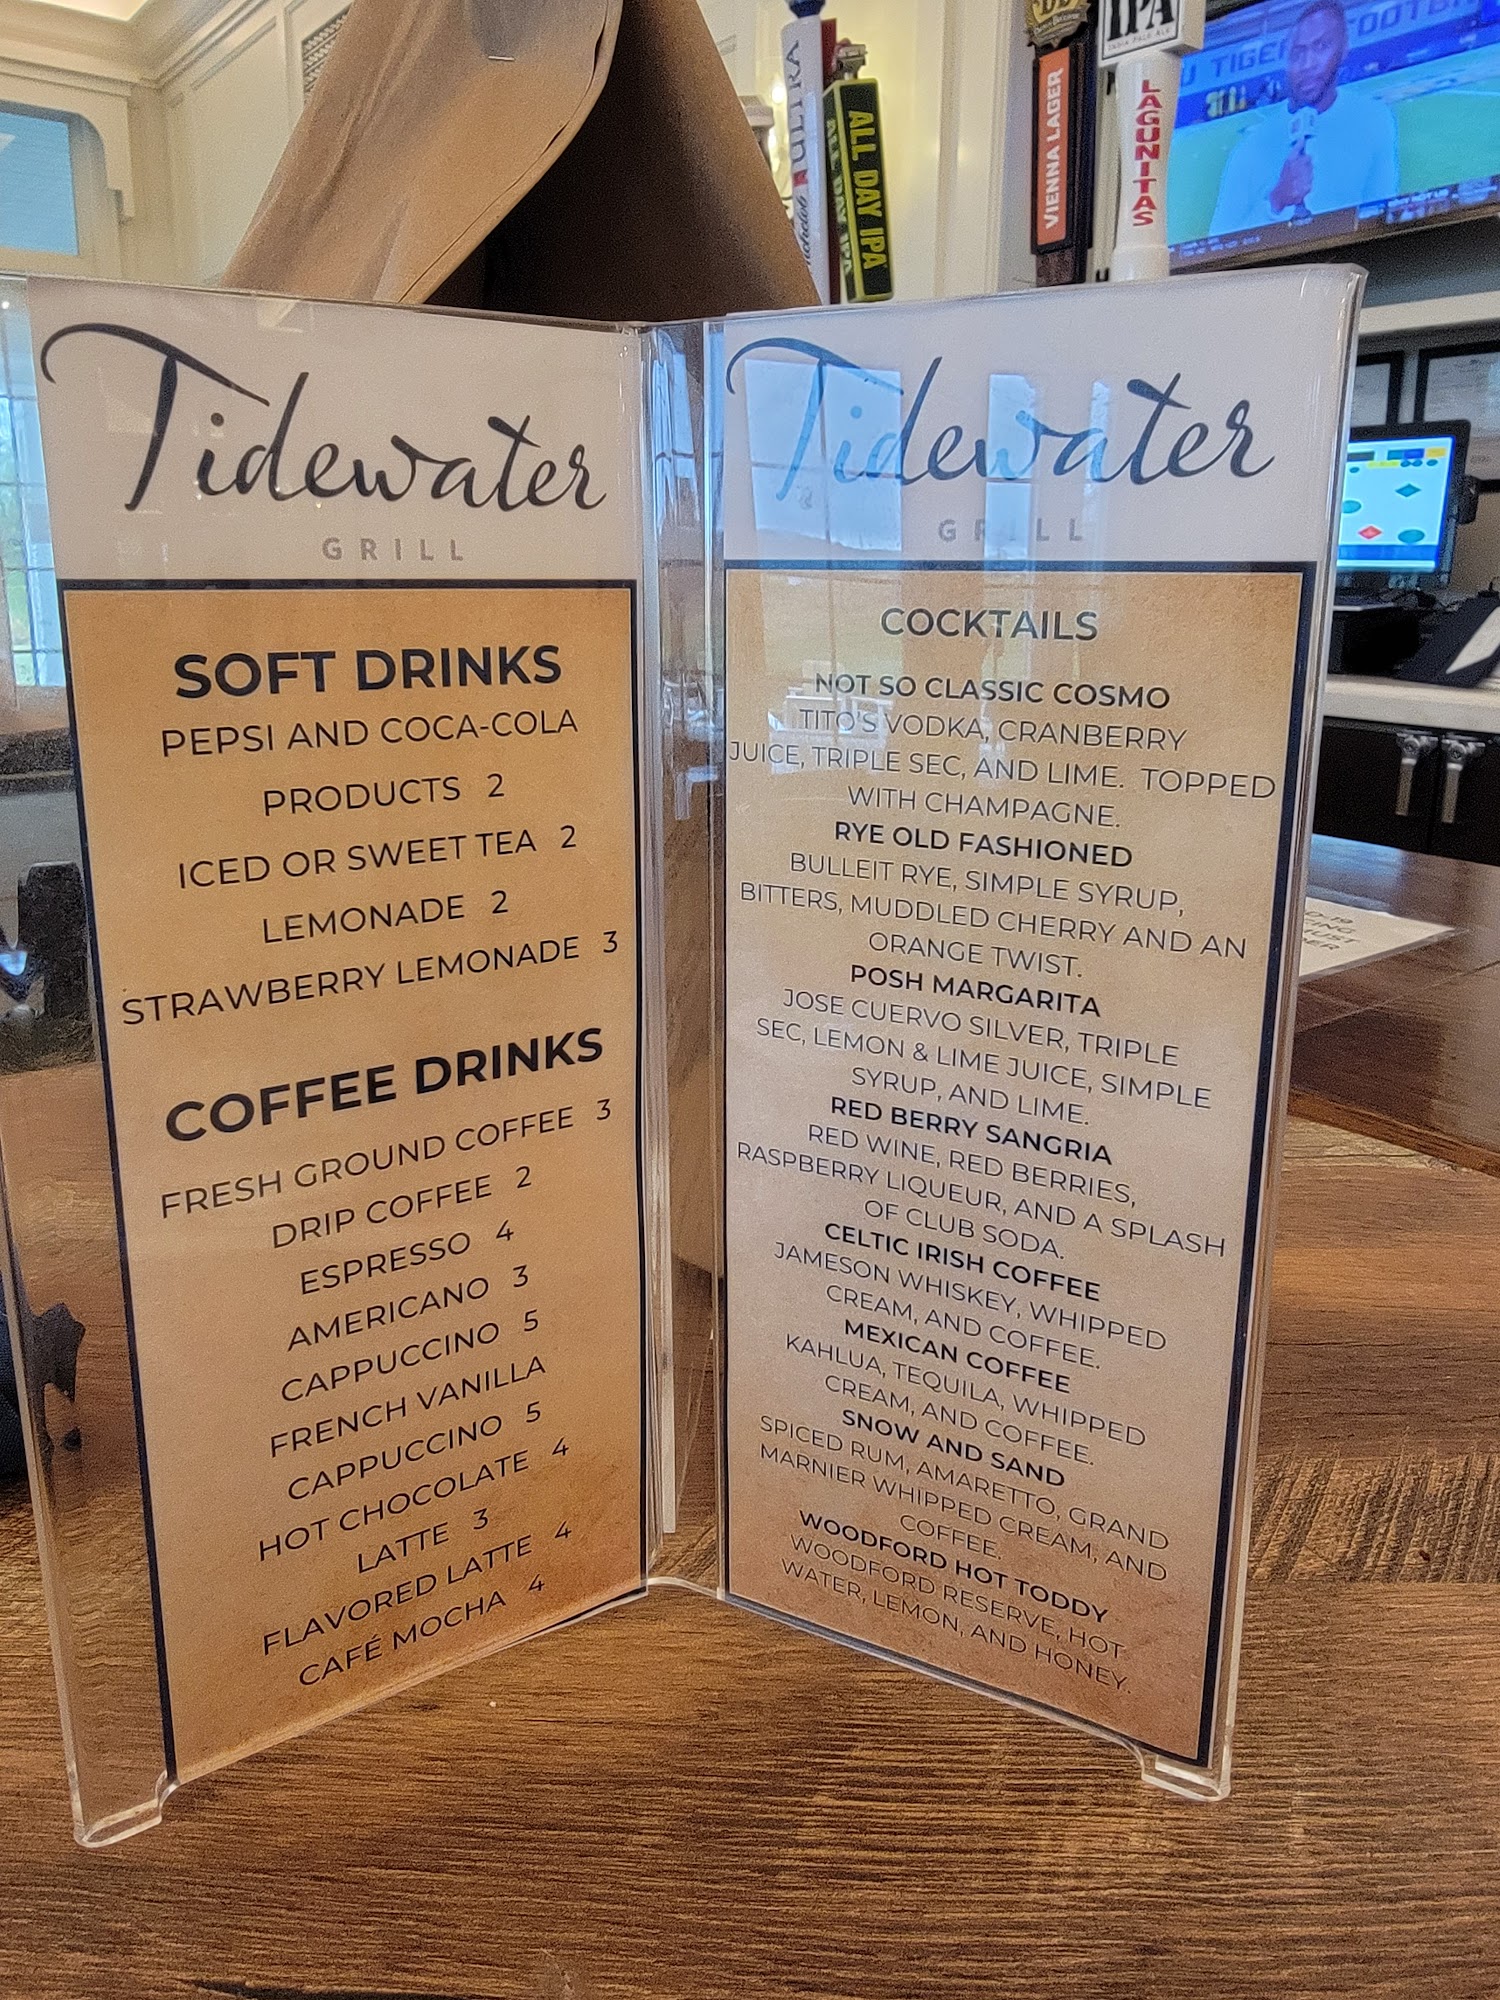 Tidewater
GRILL
SOFT DRINKS
PEPSI AND COCA-COLA
PRODUCTS 2
ICED OR SWEET TEA 2
LEMONADE 2
STRAWBERRY LEMONADE 3
COFFEE DRINKS
FRESH GROUND COFFEE 3
DRIP COFFEE 2
ESPRESSO 4
AMERICANO 3
CAPPUCCINO 5
FRENCH VANILLA
CAPPUCCINO 5
HOT CHOCOLATE 4
LATTE 3
FLAVORED LATTE 4
CAFÉ MOCHA 4
Tidewater
GRILL
COCKTAILS
NOT SO CLASSIC COSMO
TITO'S VODKA, CRANBERRY
JUICE, TRIPLE SEC, AND LIME. TOPPED
WITH CHAMPAGNE.
RYE OLD FASHIONED
BULLEIT RYE, SIMPLE SYRUP,
BITTERS, MUDDLED CHERRY AND AN
ORANGE TWIST.
POSH MARGARITA
JOSE CUERVO SILVER, TRIPLE
SEC, LEMON & LIME JUICE, SIMPLE
SYRUP, AND LIME.
RED BERRY SANGRIA
RED WINE, RED BERRIES,
RASPBERRY LIQUEUR, AND A SPLASH
OF CLUB SODA.
CELTIC IRISH COFFEE
JAMESON WHISKEY, WHIPPED
CREAM, AND COFFEE.
MEXICAN COFFEE
KAHLUA, TEQUILA, WHIPPED
CREAM, AND COFFEE.
SNOW AND SAND
SPICED RUM, AMARETTO, GRAND
MARNIER WHIPPED CREAM, AND
COFFEE.
WOODFORD HOT TODDY
WOODFORD RESERVE, HOT
WATER, LEMON, AND HONEY.
ULTRA
ALL DAY IPA
ALL DAY IPA
VIENNA LAGER
IPA
INDIA PALE ALE
LAGUNITAS